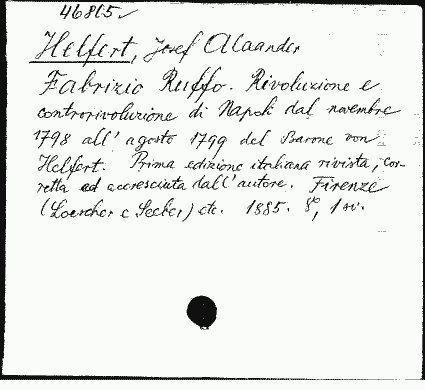 46815
Helfert, Josef Alexander
Fabrizio Ruffo. Rivoluzione e
controrivoluzione di Napoli dal novembre
1798 all' agosto 1799 del Barone von
Helfert. Prima edizione italiana rivista, cor-
retta ed accresciuta dall' autore. Firenze
(Loescher e Seeber) etc. 1885. 8°, 1 sv.